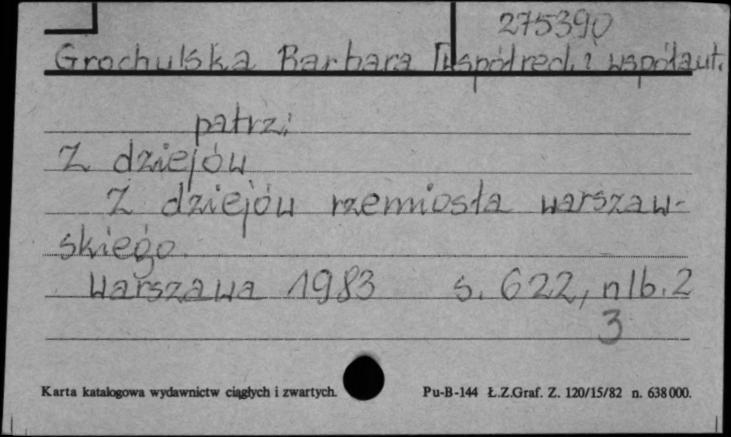 275390
Grochulska Barbara [współred. i współaut.
patrz:
Z dziejów
Z dziejów rzemiosła warszaw-
skiego.
Warszawa 1983 s. 622, nlb. 2
3
Karta katalogowa wydawnictw ciągłych i zwartych. Pu-B-144 Ł.Z.Graf. Z. 120/15/82 n. 638000.